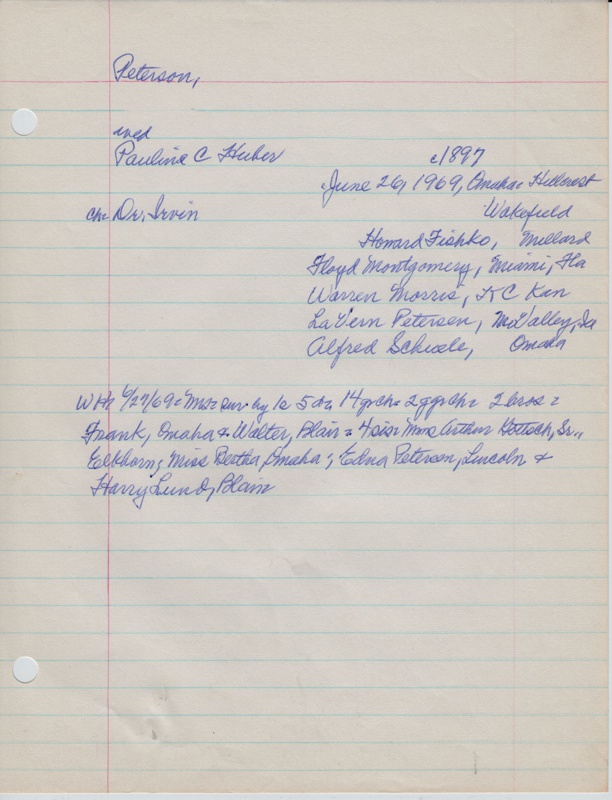 Peterson,
wed
Pauline C Huber c1897
June 26, 1969, Omaha = Hillcrest
ch = Dr. Irvin Wakefield
Howard Fishko, Millard
Floyd Montgomery, Miami, Fla
Warren Morris, K C Kan
LaVern Petersen, Mo Valley, Ia
Alfred Schiele, Omaha
WH 6/27/69 = Mrs = sur by 1s 5 da 14 grch = 2 ggrch = 2 bros =
Frank, Omaha & Walter, Blair = 4 sis = Mms Arthur Gottsch, Sr.,
Elkhorn; Miss Bertha, Omaha; Edna Petersen, Lincoln &
Harry Lund, Blair